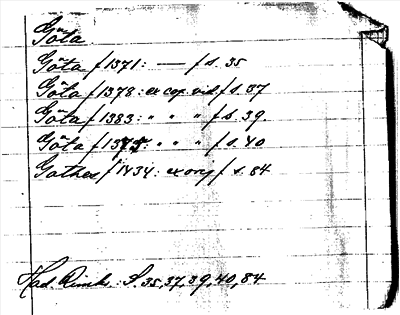 Göta
Göta /1371: — / s. 35
Göta /1378: ex cop. vid / s. 37
Göta /1383: " " " / s. 39
Göta /1375: " " " / s. 40
Gother /1434: ex orig / s. 84
Had. Rimk. S. 35, 37, 39, 40, 84